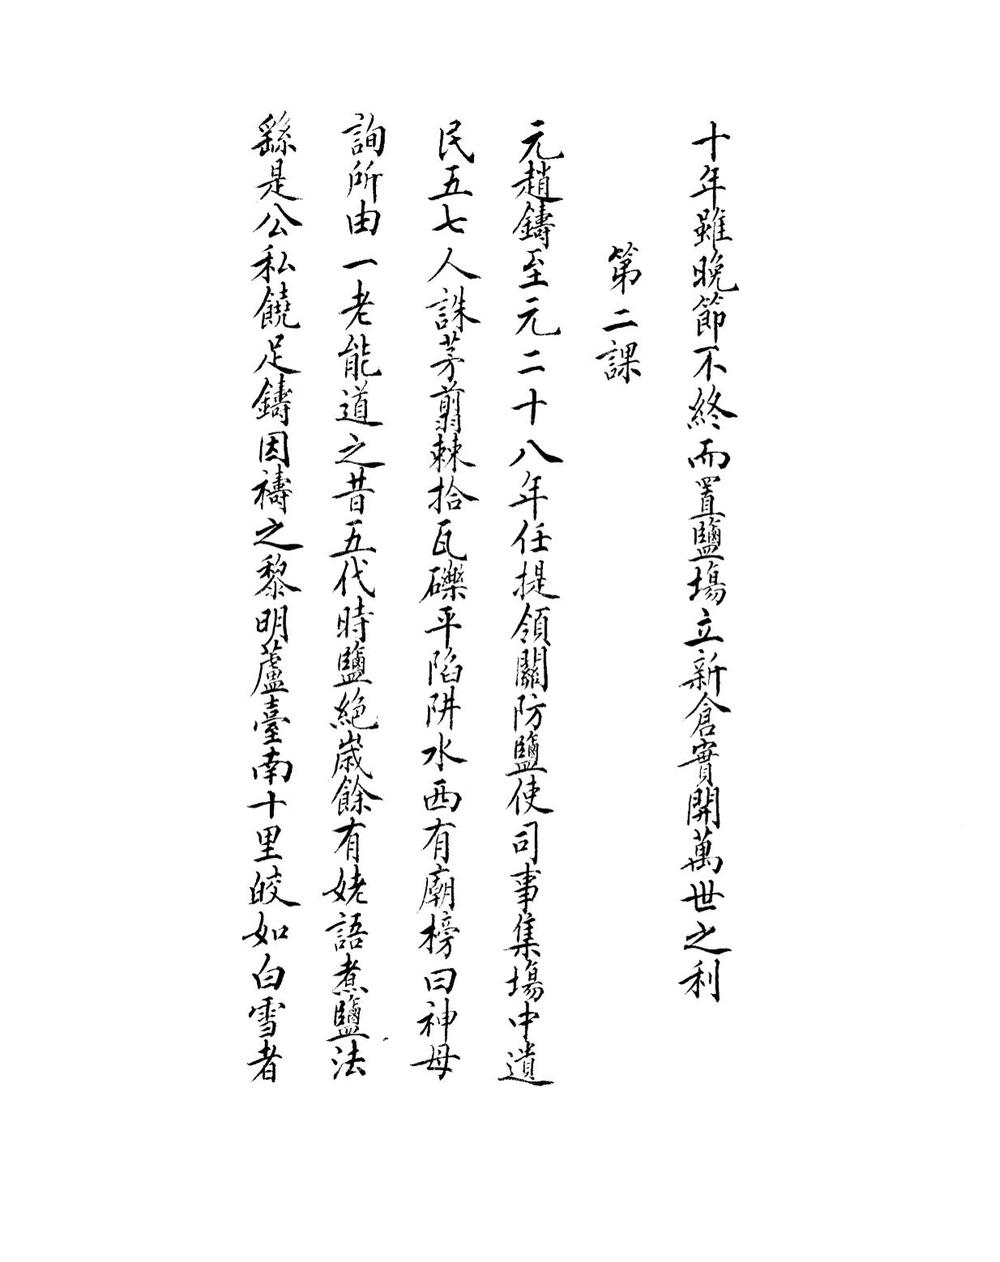 十年雖晚節不終而置鹽場立新倉實開萬世之利
第二課
元趙鑄至元二十八年任提領關防鹽使司事集場中遺
民五七人誅茅翦棘拾瓦礫平陷阱水西有廟榜曰神母
詢所由一老能道之昔五代時鹽絕歲餘有姥語煮鹽法
繇是公私饒足鑄因禱之黎明蘆臺南十里皎如白雪者